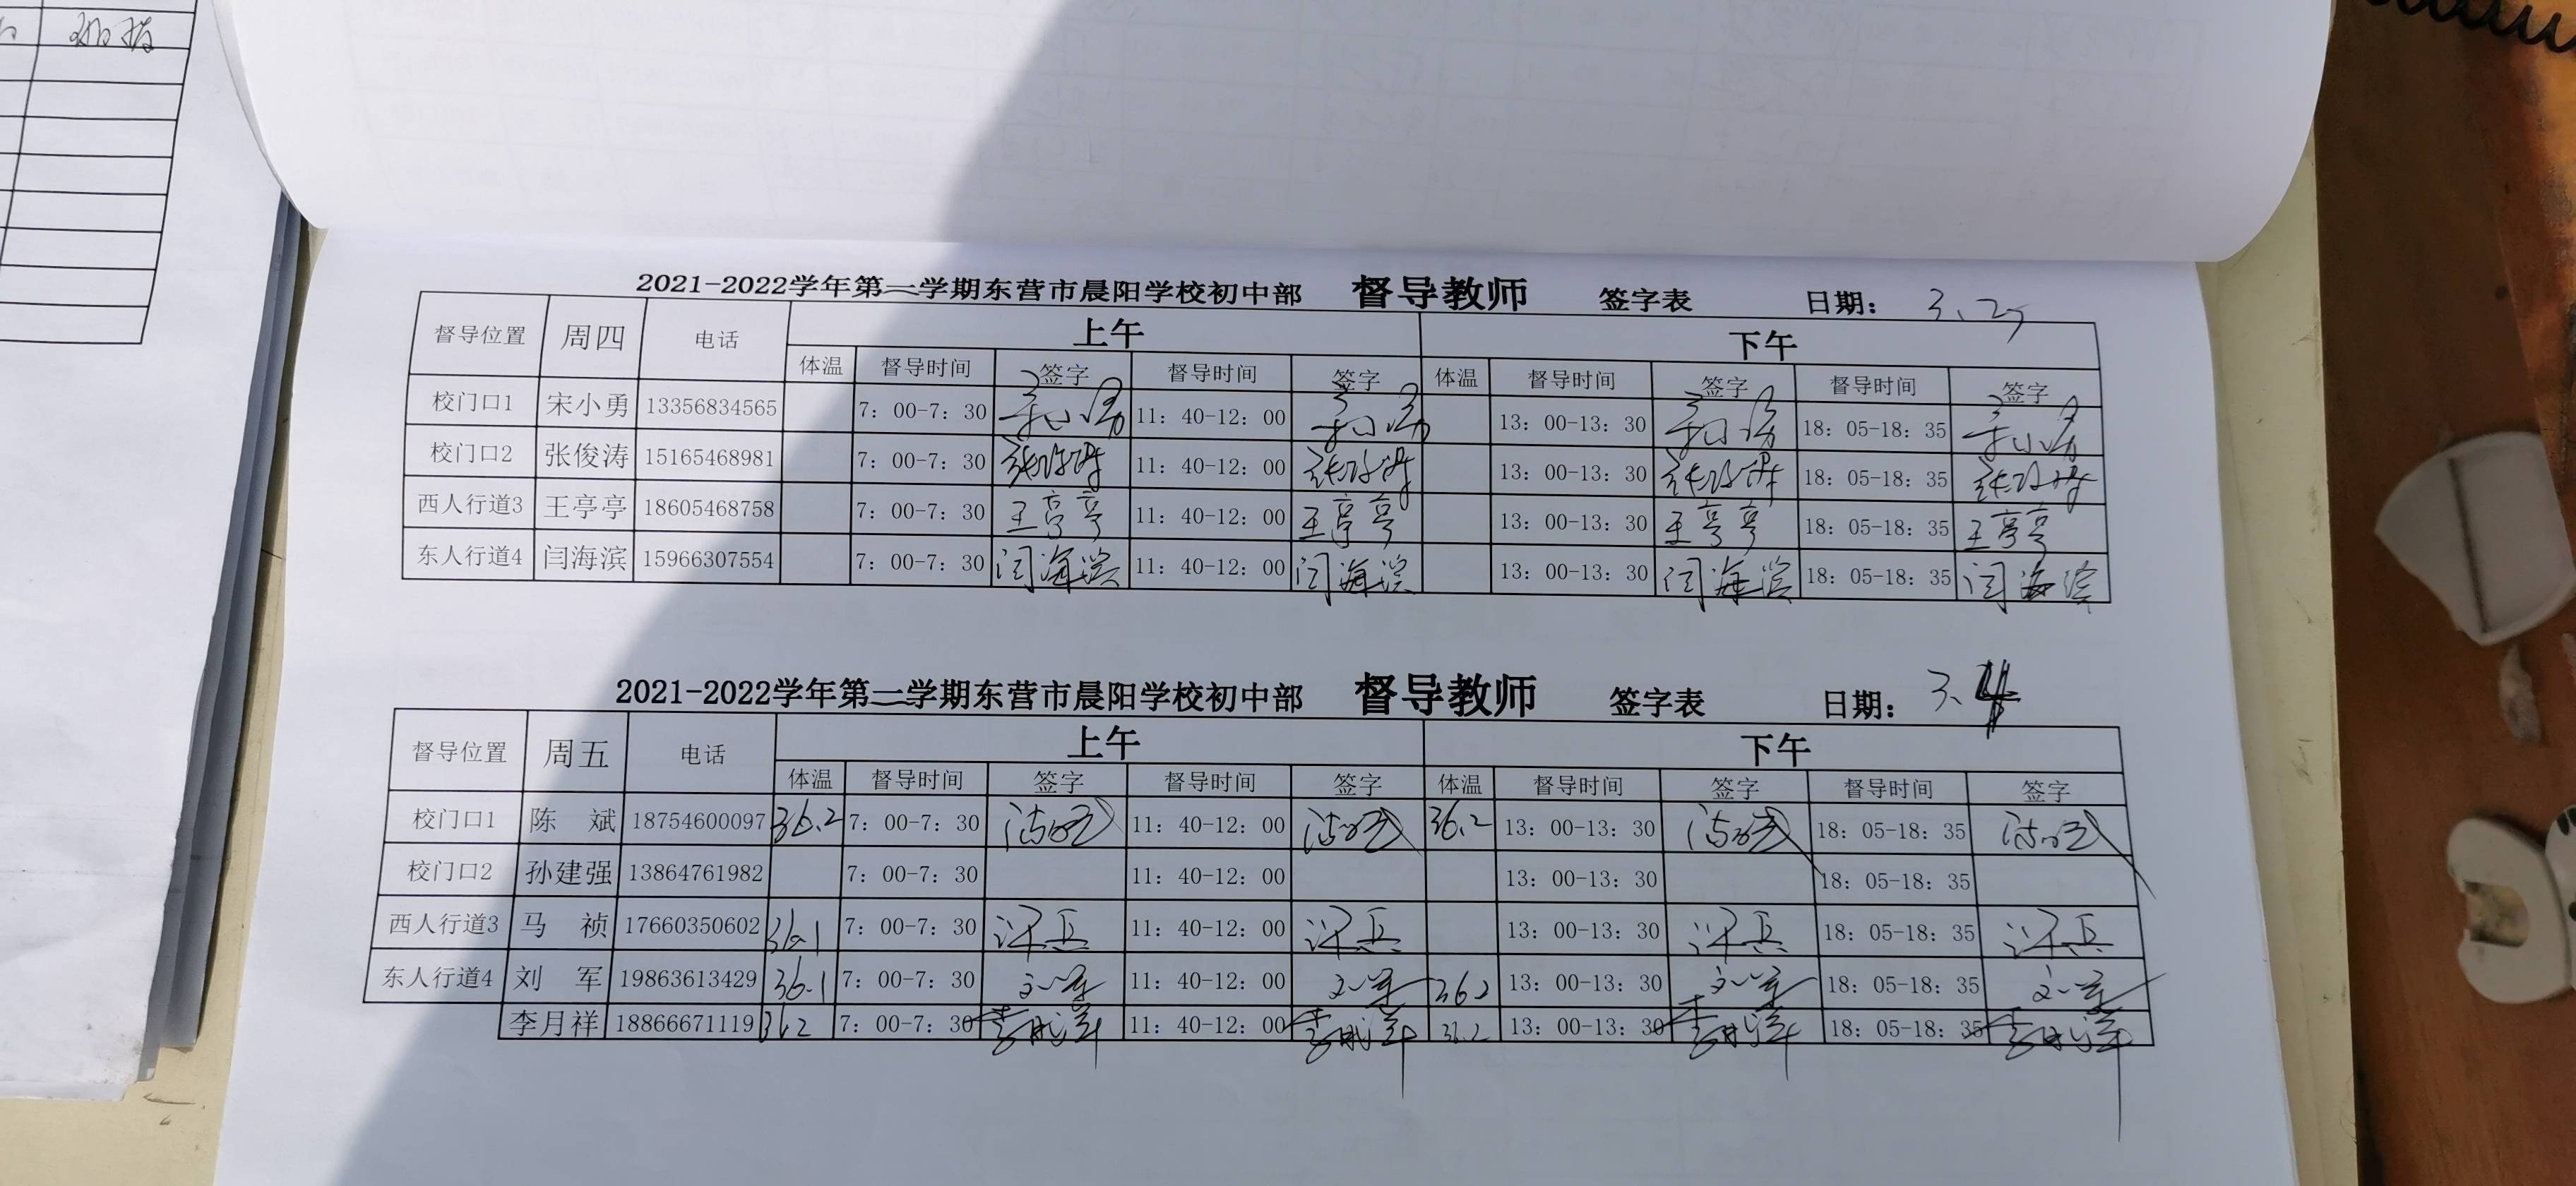 2021-2022学年第二学期东营市晨阳学校初中部 督导教师 签字表 日期： 3.
督导位置 周四 电话 上午 下午
体温 督导时间 签字 督导时间 签字 体温 督导时间 签字 督导时间 签字
校门口1 宋小勇 13356834565 7：00-7：30 宋小勇 11：40-12：00 宋小勇 13：00-13：30 宋小勇 18：05-18：35 宋小勇
校门口2 张俊涛 15165468981 7：00-7：30 11：40-12：00 13：00-13：30 18：05-18：35
西人行道3 王亭亭 18605468758 7：00-7：30 王亭亭 11：40-12：00 王亭亭 13：00-13：30 王亭亭 18：05-18：35 王亭亭
东人行道4 闫海滨 15966307554 7：00-7：30 闫海滨 11：40-12：00 闫海滨 13：00-13：30 闫海滨 18：05-18：35 闫海滨
2021-2022学年第二学期东营市晨阳学校初中部 督导教师 签字表 日期： 3.4
督导位置 周五 电话 上午 下午
体温 督导时间 签字 督导时间 签字 体温 督导时间 签字 督导时间 签字
校门口1 陈 斌 18754600097 36.2 7：00-7：30 11：40-12：00 36.2 13：00-13：30 18：05-18：35
校门口2 孙建强 13864761982 7：00-7：30 11：40-12：00 13：00-13：30 18：05-18：35
西人行道3 马 祯 17660350602 36.1 7：00-7：30 11：40-12：00 13：00-13：30 18：05-18：35
东人行道4 刘 军 19863613429 36.1 7：00-7：30 刘军 11：40-12：00 刘军 36.2 13：00-13：30 刘军 18：05-18：35 刘军
李月祥 18866671119 36.2 7：00-7：30 李月祥 11：40-12：00 李月祥 36.2 13：00-13：30 李月祥 18：05-18：35 李月祥